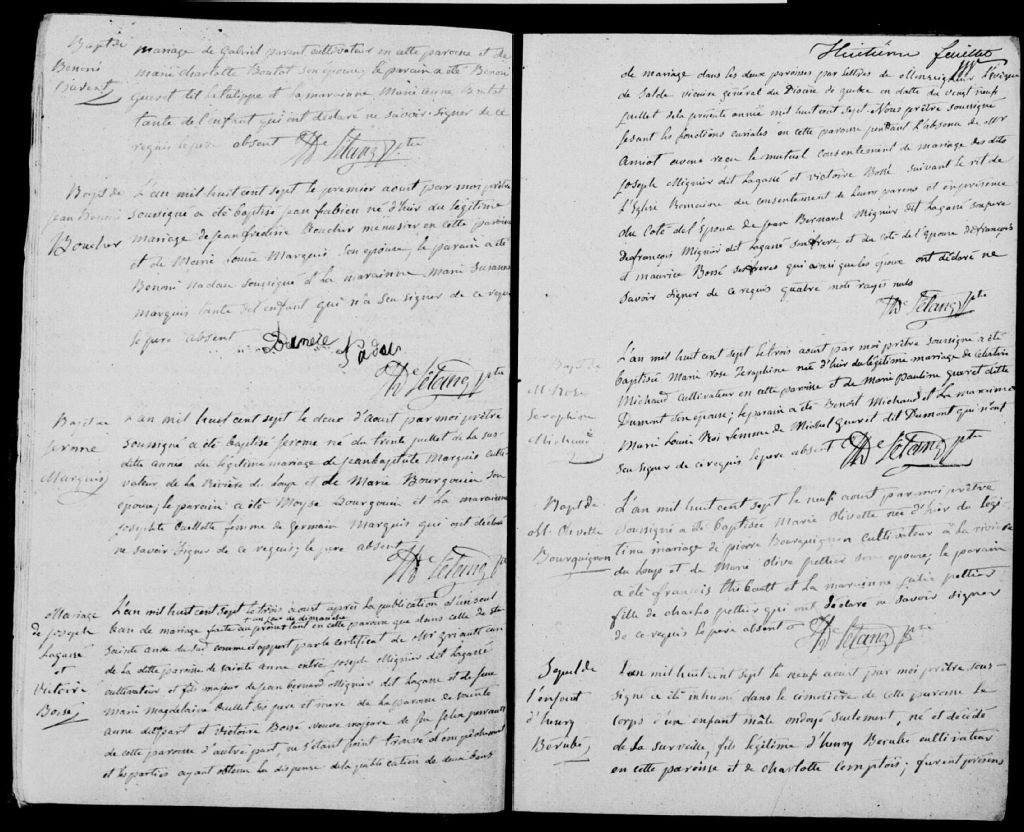 Bapt de
Benoni
Parent
mariage de Gabriel parent cultivateur en cette paroisse et de
marie Charlotte Boutot son épouse, le parain a été Benoni
Gueret dit Latulippe et la maraine Marie anne Boutot
tante de l'enfant qui ont déclaré ne savoir signer de ce
requis le pere absent Th de Létang ptre
Bapt de
jean
Boucher
L'an mil huit cent sept le premier aout par moi prêtre
sousigné a été baptisé jean fabien né d'hier du légitime
mariage de jean Boucher menusier en cette paroisse
et de Marie Louise Marquis son épouse, le parain a été
Benoni Nadau sousigné et la maraine Marie Susanne
marquis tante de l'enfant qui n'a seu signer de ce requis
le pere absent
Th de Létang ptre
Bapt de
Jérome
Marquis
L'an mil huit cent sept le deux d'aout par moi prêtre
sousigné a été baptisé jerome né du trente juillet de la sus
ditte année du légitime mariage de jean baptiste Marquis culti-
vateur de la Rivière du Loup et de Marie Bourgouin son
épouse; le parain a été Moyse Bourgouin et la maraine
josephte Ouellette femme de Germain Marquis qui ont déclaré
ne savoir signer de ce requis; le pere absent
Th de Létang ptre
Mariage
de Joseph
Lagassé
et
Victoire
Bossé
L'an mil huit cent sept le trois aout après la publication d'un seul
+ un jour de dimanche
ban de mariage faite au prône tant en cette paroisse que dans celle de ste
Sainte anne du sud comme il appert par le certificat de Mr curé
de la ditte paroisse de sainte anne entre joseph Mignier dit Lagassé
cultivateur et fils majeur de jean bernard Mignier dit Lagassé et de feue
marie magdelaine Ouellet ses pere et mere de la paroisse de sainte
anne d'une part et victoire Bossé veuve majeure de feu
de cette paroisse d'autre part, ne s'étant point trouvé d'empêchement
et les parties ayant obtenu la dispense de la publication de deux bans
Huitième feuillet
de mariage dans les deux paroisses par lettres de Monseigneur L'évêque
de Salde vicaire général du Diocèse de quebec en datte du vingt neuf
juillet de la présente année mil huit cent sept. Nous prêtre sousigné
fesant les fonctions curiales en cette paroisse pendant l'absence de Mr
Amiot avons reçu le mutuel consentement de mariage des dits
joseph Mignier dit Lagassé et victoire Bossé suivant le rit de
L'Eglise Romaine du consentement de leurs parens et en présence
du coté de l'époux de jean Bernard Mignier dit Lagassé son pere
de françois Mignier dit Lagassé son frere et du coté de l'épouse de françois
et maurice Bossé ses freres qui ainsi que les époux ont déclaré ne
savoir signer de ce requis quatre mots rayés nuls
Th de Létang ptre
Bapt de
M. Rose
Séraphine
Michaud
L'an mil huit cent sept le trois aout par moi prêtre sousigné a été
baptisée Marie rose Seraphine née d'hier du légitime mariage de
Michaud cultivateur en cette paroisse et de Marie Pauline Gueret ditte
Dumont son épouse; le parain a été Benoit Michaud et la maraine
Marie Louise Roi femme de Michel Gueret dit Dumont qui n'ont
seu signer de ce requis le pere absent Th de Létang ptre
Bapt de
M. Olivette
Bourguignon
L'an mil huit cent sept le neuf aout par moi prêtre
sousigné a été baptisée Marie Olivette née d'hier du legi-
time mariage de pierre Bourguignon cultivateur à la riviere
du Loup et de Marie Olive pettier son épouse; le parain
a été françois thibault et la maraine julie pettier
fille de charles pettier qui ont déclaré ne savoir signer
de ce requis le pere absent Th de Létang ptre
Sepul de
l'enfant
d'henry
Berubé
L'an mil huit cent sept le neuf aout par moi prêtre sous-
signé a été inhumé dans le cimetière de cette paroisse le
corps d'un enfant mâle ondoyé seulement, né et décédé
de la surveille, fils légitime d'henry Berubé cultivateur
en cette paroisse et de charlotte comptois; furent présens